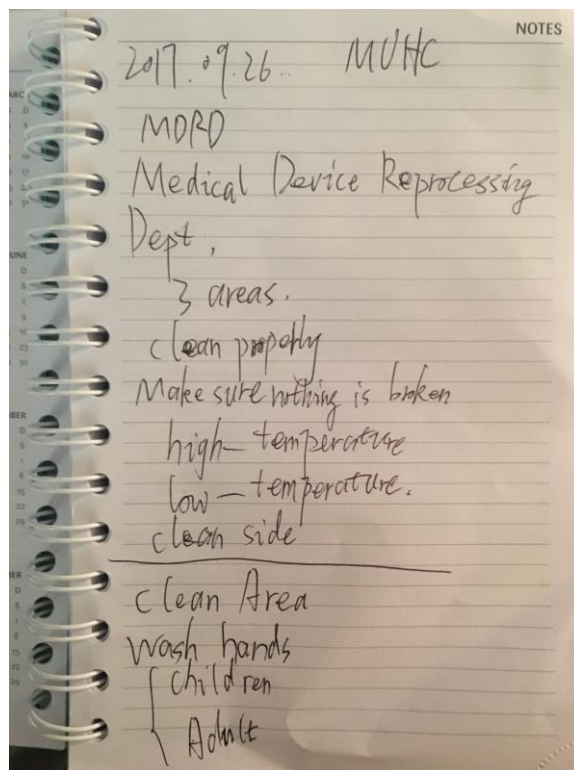 NOTES
2017.09.26.. MUHC
MDRD
Medical Device Reprocessing
Dept,
3 areas.
clean properly
Make sure nothing is broken
high-temperature
low-temperature.
clean side
clean Area
wash hands
children
Adult